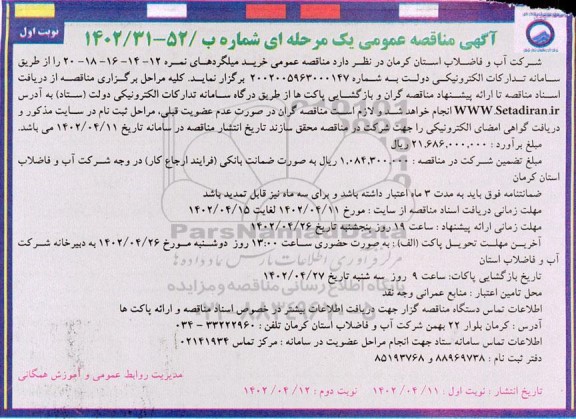 نوبت اول
آگهی مناقصه عمومی یک مرحله ای شماره ب /۵۲-۱۴۰۲/۳۱
شرکت آب و فاضلاب استان کرمان در نظر دارد مناقصه عمومی خرید میلگردهای نمره ۱۲-۱۴-۱۶-۱۸-۲۰ را از طریق
سامانه تدارکات الکترونیکی دولت به شماره ۲۰۰۲۰۰۵۹۶۳۰۰۰۱۴۷ برگزار نماید. کلیه مراحل برگزاری مناقصه از دریافت
اسناد مناقصه تا ارائه پیشنهاد مناقصه گران و بازگشایی پاکت ها از طریق درگاه سامانه تدارکات الکترونیکی دولت (ستاد) به آدرس
WWW.Setadiran.ir انجام خواهد شد و لازم است مناقصه گران در صورت عدم عضویت قبلی، مراحل ثبت نام در سایت مذکور و
دریافت گواهی امضای الکترونیکی را جهت شرکت در مناقصه محقق سازند تاریخ انتشار مناقصه در سامانه تاریخ ۱۴۰۲/۰۴/۱۱ می باشد.
مبلغ برآورد : ۲۱.۶۸۶.۰۰۰.۰۰۰ ریال
مبلغ تضمین شرکت در مناقصه : ۱.۰۸۴.۳۰۰.۰۰۰ ریال به صورت ضمانت بانکی (فرایند ارجاع کار) در وجه شرکت آب و فاضلاب
استان کرمان
ضمانتنامه فوق باید به مدت ۳ ماه اعتبار داشته باشد و برای سه ماه نیز قابل تمدید باشد
مهلت زمانی دریافت اسناد مناقصه از سایت : مورخ ۱۴۰۲/۰۴/۱۱ لغایت ۱۴۰۲/۰۴/۱۵
مهلت زمانی ارائه پیشنهاد : ساعت ۱۹ روز پنجشنبه تاریخ ۱۴۰۲/۰۴/۲۶
آخرین مهلت تحویل پاکت (الف) : به صورت حضوری ساعت ۱۳:۰۰ روز دوشنبه مورخ ۱۴۰۲/۰۴/۲۶ به دبیرخانه شرکت
آب و فاضلاب استان
تاریخ بازگشایی پاکات: ساعت ۹ روز سه شنبه تاریخ ۱۴۰۲/۰۴/۲۷
محل تامین اعتبار : منابع عمرانی وجه نقد
اطلاعات تماس دستگاه مناقصه گزار جهت دریافت اطلاعات بیشتر در خصوص اسناد مناقصه و ارائه پاکت ها
آدرس : کرمان بلوار ۲۲ بهمن شرکت آب و فاضلاب استان کرمان تلفن : ۳۳۲۲۲۹۶۰ - ۰۳۴
اطلاعات تماس سامانه ستاد جهت انجام مراحل عضویت در سامانه : مرکز تماس ۰۲۱۴۱۹۳۴
دفتر ثبت نام : ۸۸۹۶۹۷۳۸ و ۸۵۱۹۳۷۶۸
مدیریت روابط عمومی و آموزش همگانی
تاریخ انتشار : نوبت اول : ۱۱ / ۰۴ / ۱۴۰۲ نوبت دوم : ۱۲ / ۰۴ / ۱۴۰۲